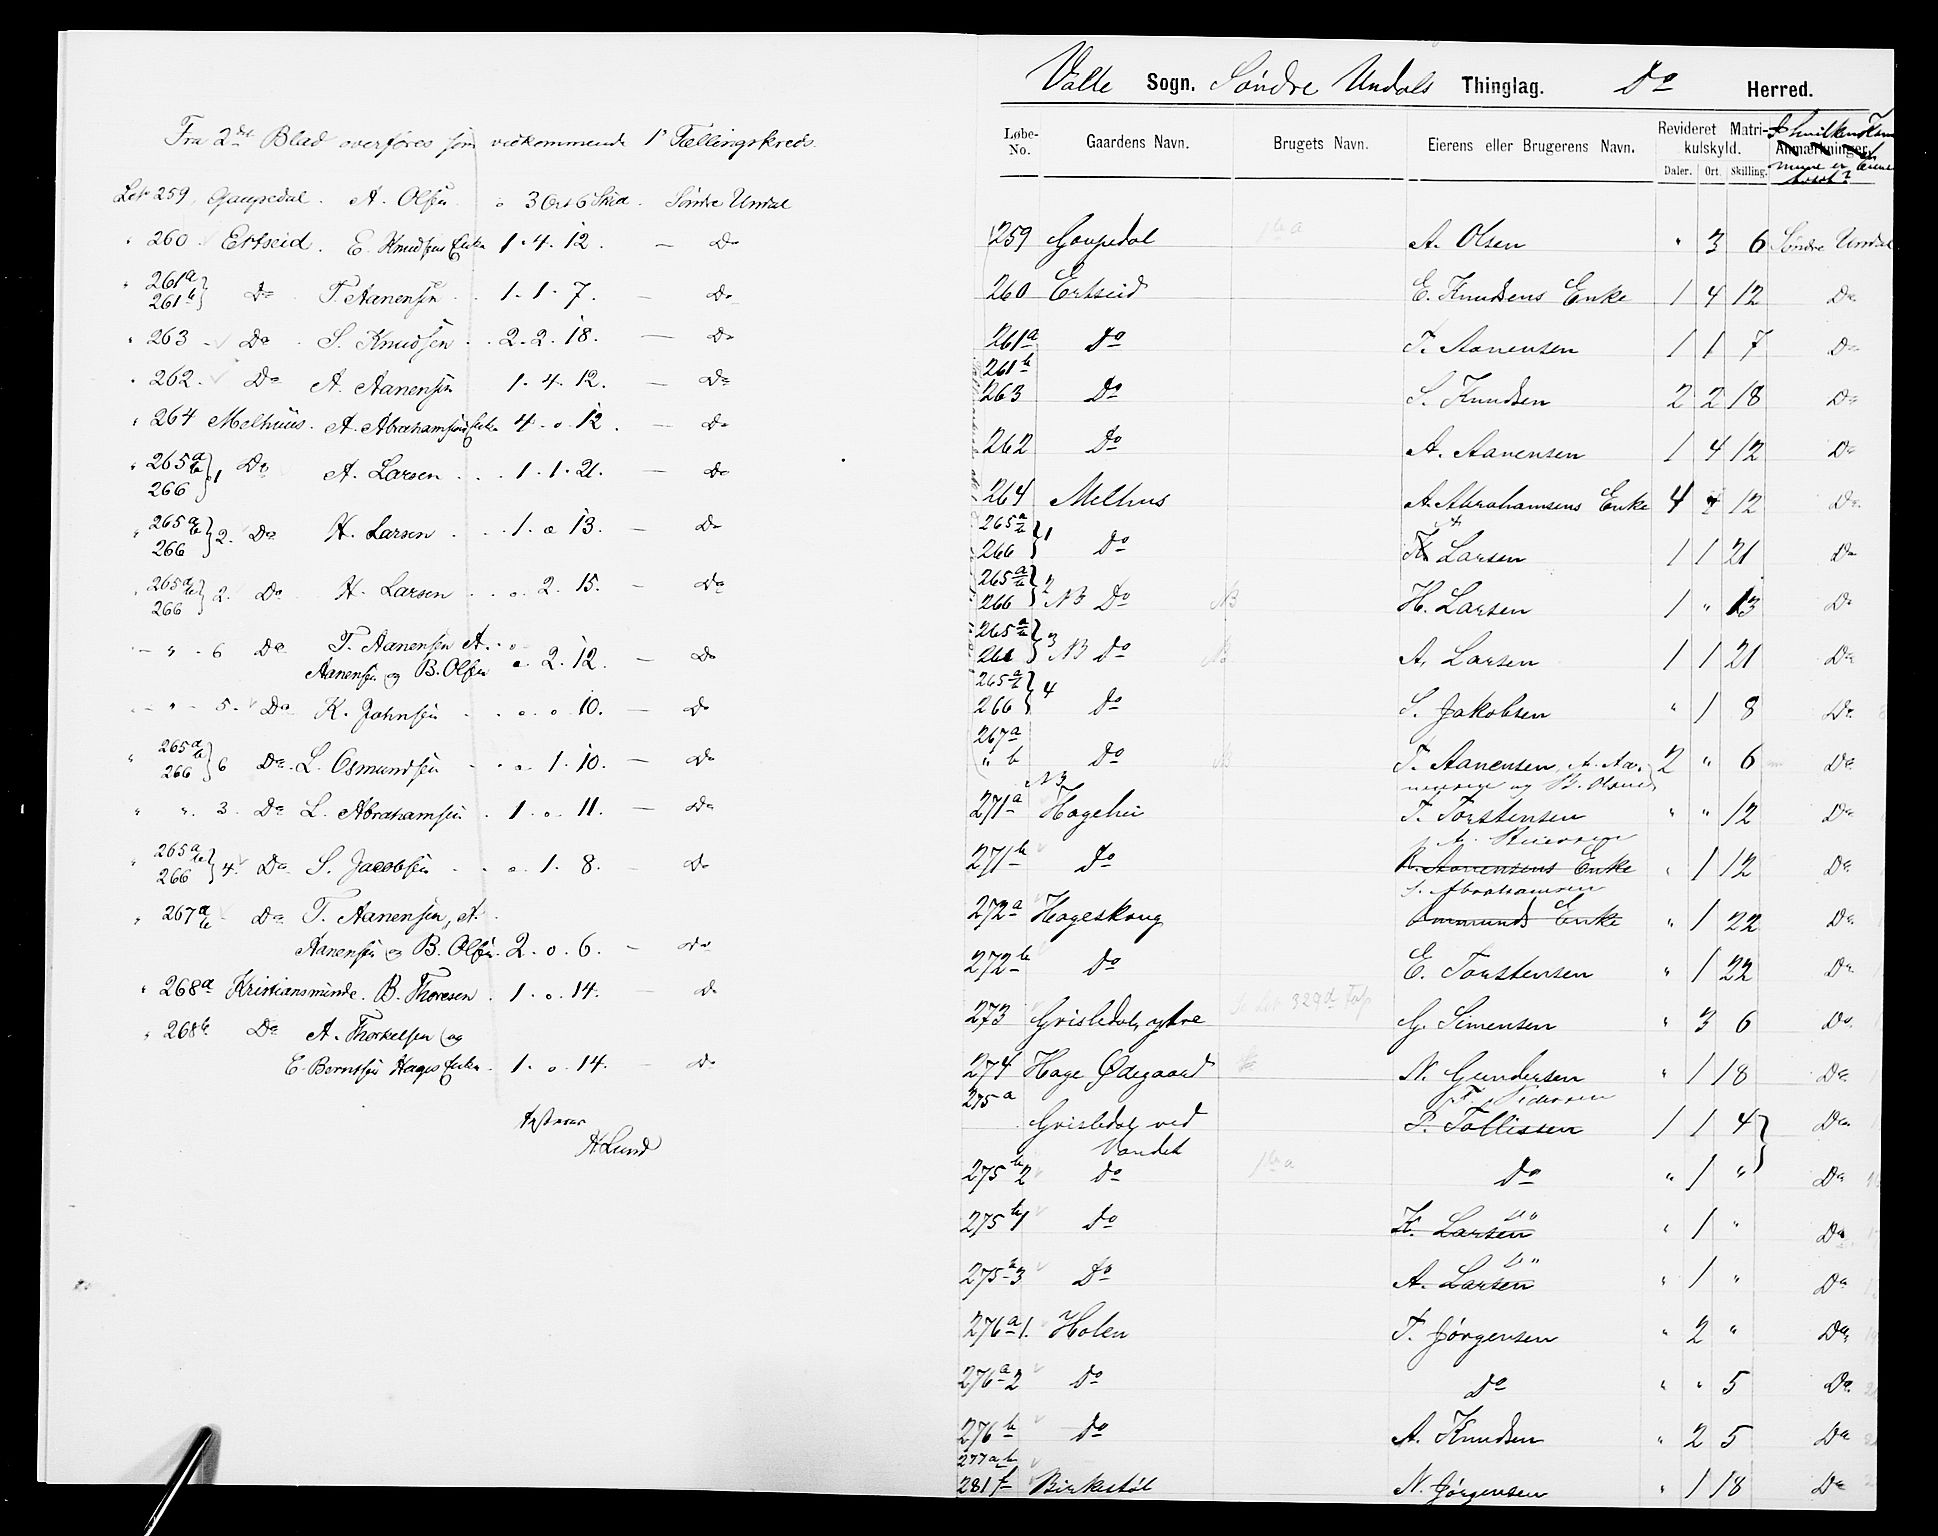 Fra 2det Blad overføres som vedkommende 1e Tællingskreds.
Lbr 259, Gaupedal. A. Olsen " 3 Ort 6 Skil. Søndre Undal
" 260 Ertseid. E. Knudsens Enke 1. 4. 12. — Do
" 261a
261b } Do T. Aanensen . . 1. 1. 7. — Do
" 263 Do S. Knudsen . . 2. 2. 18. — Do
" 262. Do A. Aanensen 1. 4. 12. — Do
" 264 Melhuus. A. Abrahamsens Enke 4. o. 12. — Do
" 265a/b
266 } 1 Do A. Larsen . . . 1. 1. 21. — Do
" 265a/b
266 } 2. Do H. Larsen . . 1. o 13. — Do
" 265a/b
266 } 2. Do H. Larsen . . o. 2. 15. — Do
— " - 6 Do T. Aanensen A.
Aanensen og B. Olsen o. 2. 12. — Do
— " - 5. Do K. Johnsen . . o. o. 10. — Do
" 265a/b
266 } 6 Do. L. Osmundsen . . o. 1. 10. — Do
" ". 3. Do L. Abrahamsen . 1. o. 11. — Do
" 265a/b
266 } 4. Do S. Jacobsen . . o. 1. 8. — Do
" 267a/b Do T. Aanensen, A.
Aanensen og B. Olsen. 2. o. 6. — Do
" 268a Kristiansminde. B. Thoresen . 1. o. 14. — Do
" 268b Do A. Thorkelsen og
E. Berntsen Hages Enke . 1. o. 14. — Do
A Lund
Valle Sogn. Søndre Undals Thinglag. Do Herred.
Løbe-No. Gaardens Navn. Brugets Navn. Eierens eller Brugerens Navn. Revideret Matrikulskyld. Anmærkninger.
Daler. Ort. Skilling.
259 Gaupedal A. Olsen " 3 6 Søndre Undal
260 Ertseid E. Knudsens Enke 1 4 12 Do
261a Do T. Aanensen 1 1 7 Do
261b
263 Do S. Knudsen 2 2 18 Do
262 Do A. Aanensen 1 4 12 Do
264 Melhus A. Abrahamsens Enke 4 " 12 Do
265a/b
266 } 1 Do A. Larsen 1 1 21 Do
265a/b
266 } 2 NB Do NB H. Larsen 1 " 13 Do
265a/b
266 } 3 NB Do A. Larsen 1 1 21 Do
265a/b
266 } 4 Do S. Jakobsen " 1 8 Do
267a
" b Do T. Aanensen, A. Aanensen og B. Olsen 2 " 6 Do
NB
271a Hagehei T. Torstensen " " 12 Do
271b Do R. Aanensens Enke " 1 12 Do
S. Abrahamsen
272a Hageskoug Ommunds Enke " 1 22 Do
272b Do E. Torstensen " 1 22 Do
273 Grisledal, ytre G. Simensen " 3 6 Do
274 Hage Ødegaard N. Gundersen " 1 18 Do
275a
Grisledal ved Vandet P. Tollissen 1 1 4 Do
275b 2 Do Do " 1 " Do
275b 1 Do H. Larsen " 1 " Do
275b 3 Do A. Larsen " 1 " Do
276a 1. Holen T. Jørgensen " 2 " Do
276a 2 Do Do " " 5 Do
276b Do A. Knudsen " 2 5 Do
277a b
281f Birkestøl N. Jørgensen " 1 18 Do